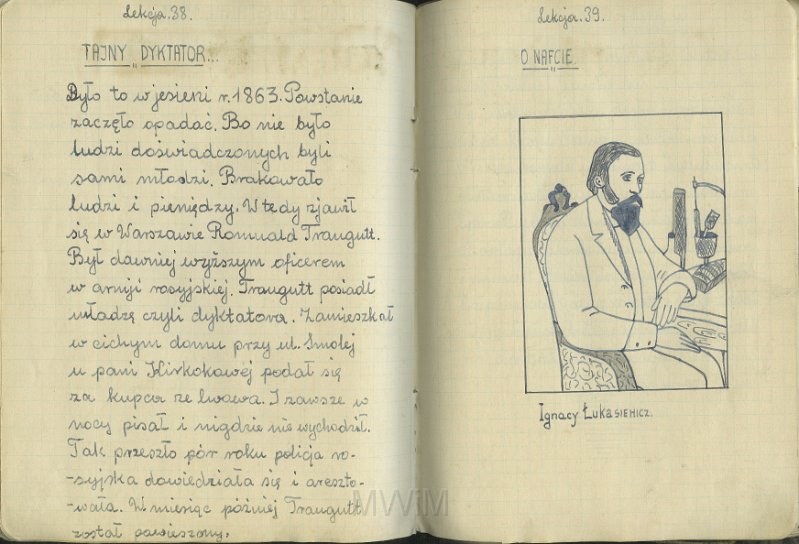 Lekcja.38.
TAJNY DYKTATOR...
Było to w jesieni r. 1863. Powstanie
zaczęło opadać. Bo nie było
ludzi doświadczonych byli
sami młodzi. Brakowało
ludzi i pieniędzy. Wtedy zjawił
się w Warszawie Romuald Traugutt.
Był dawniej wyższym oficerem
w armji rosyjskiej. Traugutt posiadł
władzę czyli dyktatora. Zamieszkał
w cichym domu przy ul. Smolej
u pani Kirkokowej podał się
za kupca ze lwowa. I zawsze w
nocy pisał i nigdzie nie wychodził.
Tak przeszło pór roku policja ro-
-syjska dowiedziała się i areszto-
-wała. W miesiąc później Traugutt
został powieszony.
Lekcja.39.
O NAFCIE.
Ignacy Łukasiewicz.
MWiM